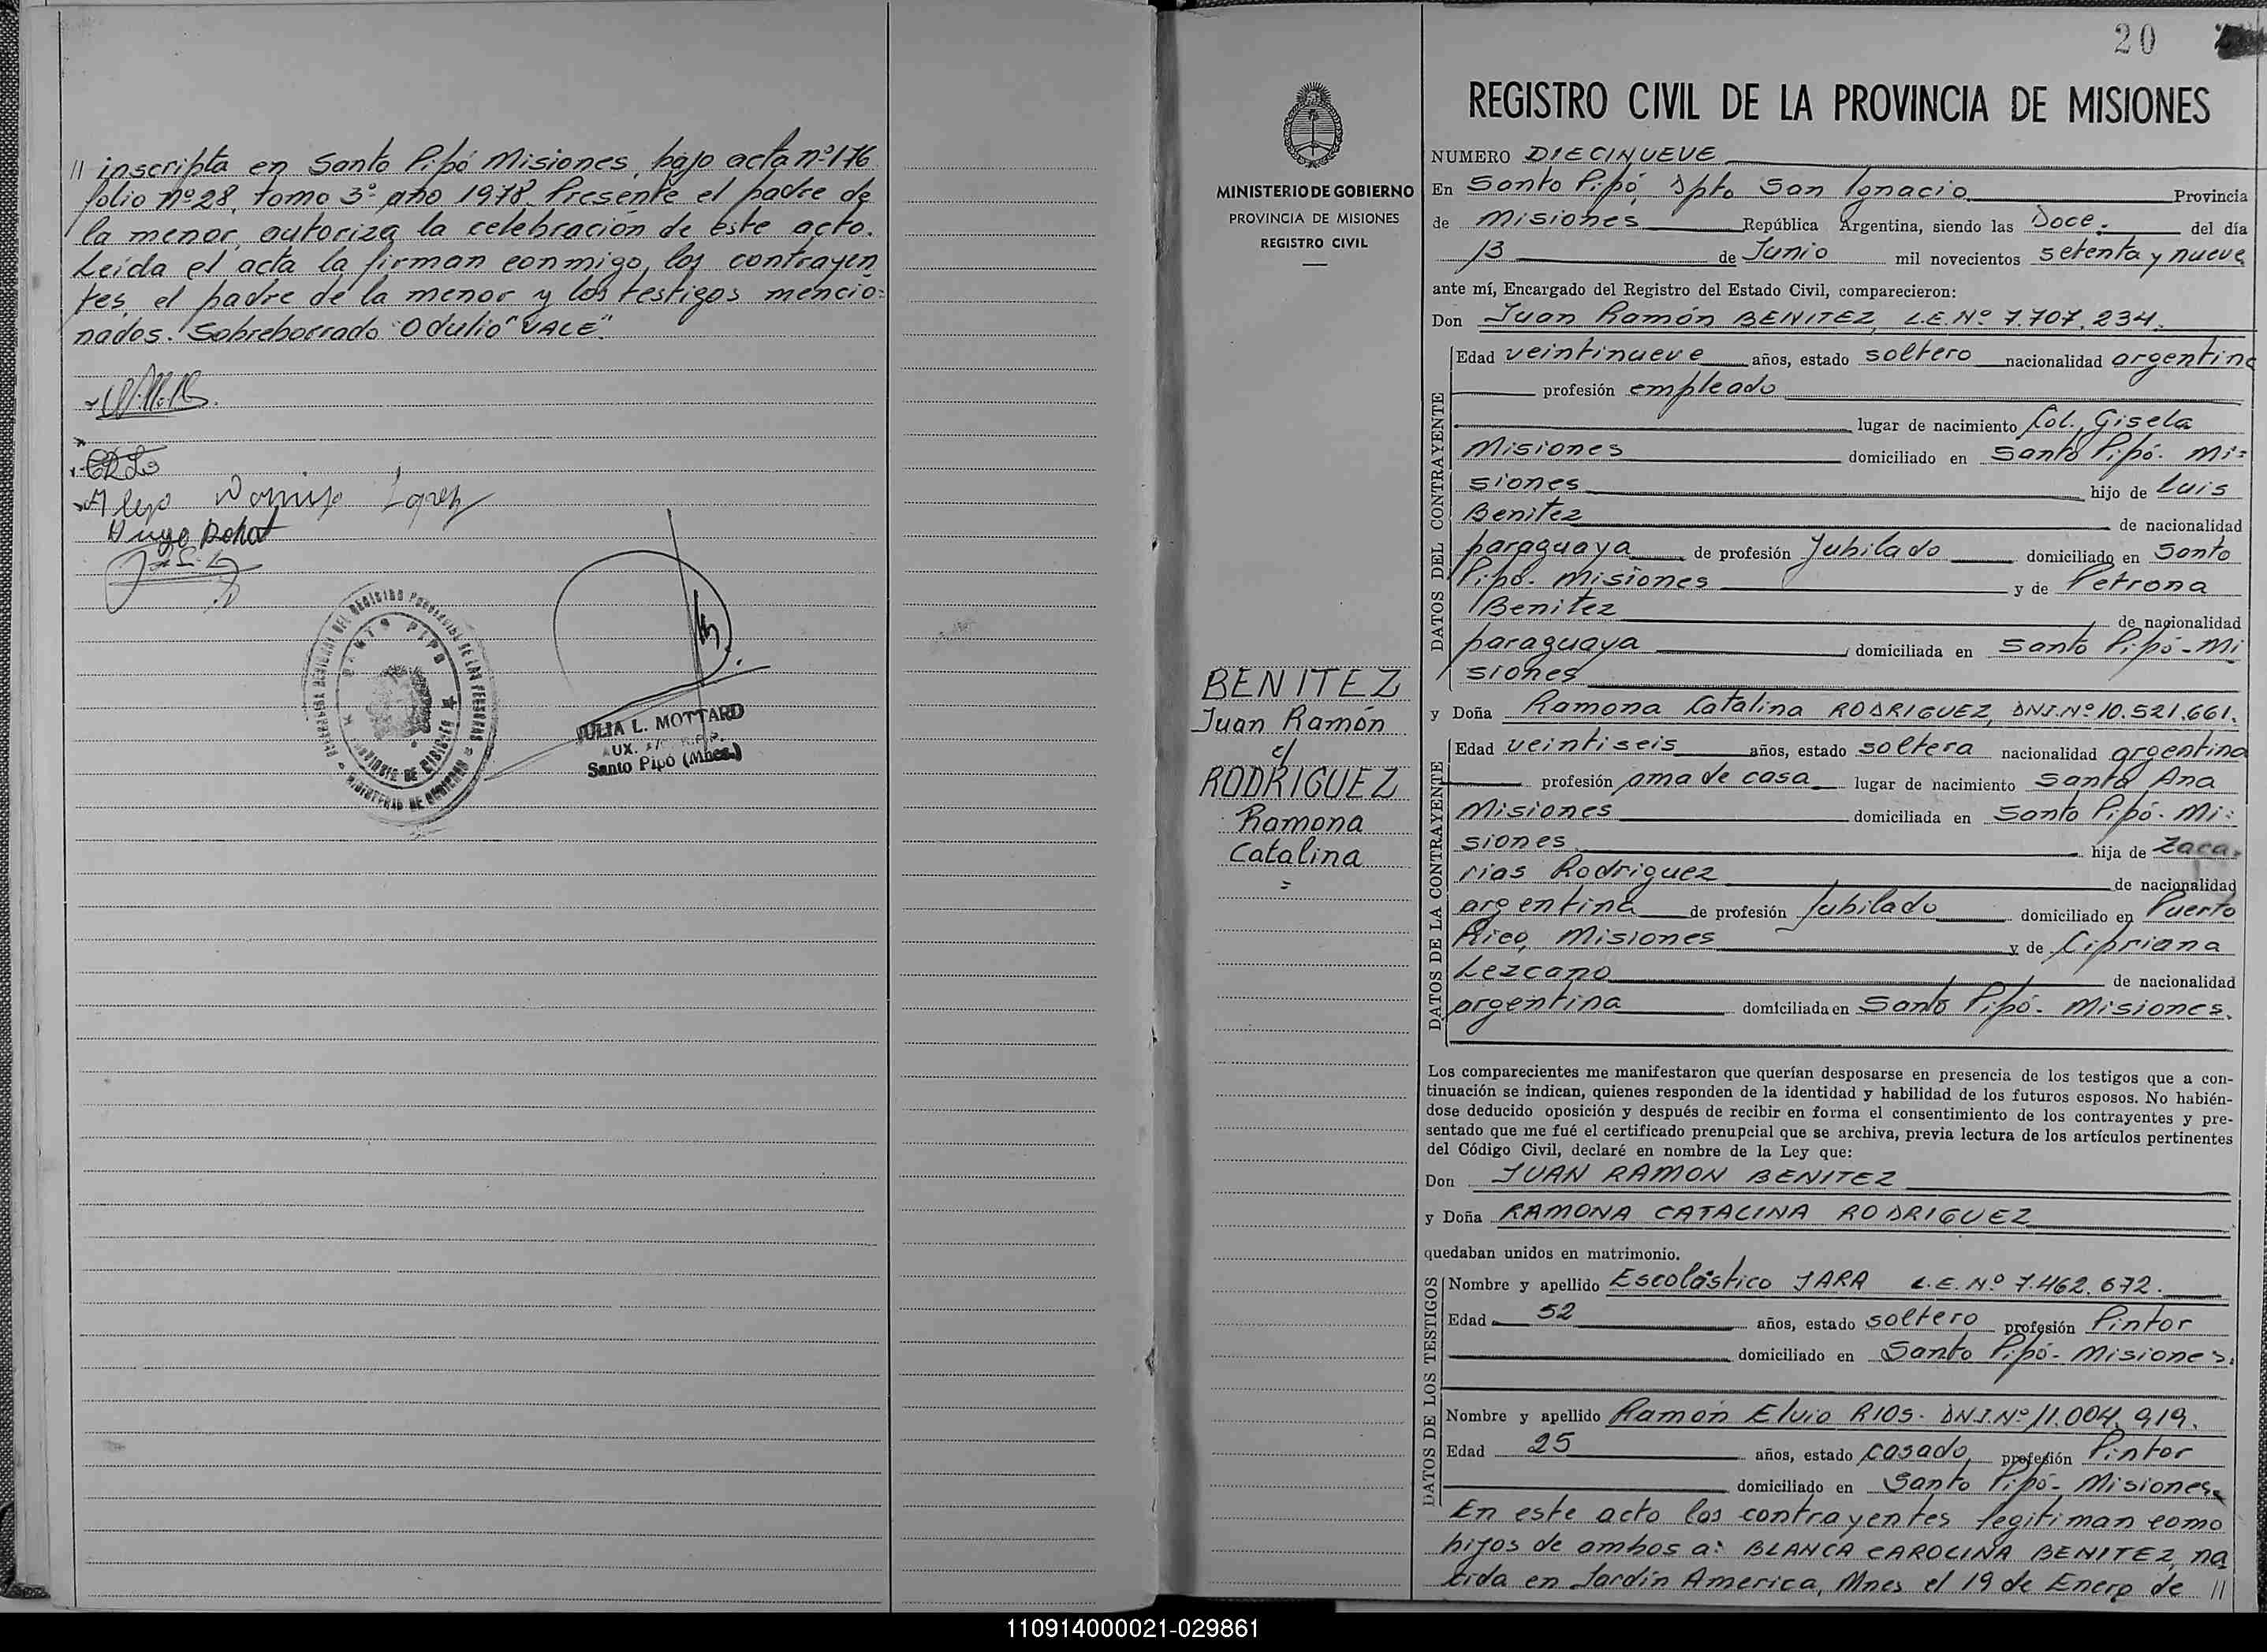 // inscripta en Santo Pipó Misiones, bajo acta nº 176
folio nº 28, tomo 3º año 1978. Presente el padre de
la menor, autoriza la celebración de este acto.
Leída el acta la firman conmigo, los contrayen
tes, el padre de la menor y los testigos mencio=
nados. Sobreborrado "Odulio" VALE".
Alejo Lopez
Hugo
SANTO PIPO
JULIA L. MOTTARD
AUX.
Santo Pipó (Mnes.)
20
MINISTERIO DE GOBIERNO
PROVINCIA DE MISIONES
REGISTRO CIVIL
BENITEZ
Juan Ramón
c/
RODRIGUEZ
Ramona
Catalina
=
REGISTRO CIVIL DE LA PROVINCIA DE MISIONES
NUMERO DIECINUEVE
En Santo Pipó, Dpto San Ignacio Provincia
de Misiones República Argentina, siendo las Doce. del día
13 de Junio mil novecientos setenta y nueve
ante mí, Encargado del Registro del Estado Civil, comparecieron:
Don Juan Ramón BENITEZ, L.E. Nº 7.707.234.
DATOS DEL CONTRAYENTE
Edad veintinueve años, estado soltero nacionalidad argentina
profesión empleado
lugar de nacimiento Col. Gisela
Misiones domiciliado en Santo Pipó. Mi=
siones hijo de Luis
Benitez de nacionalidad
paraguaya de profesión Jubilado domiciliado en Santo
Pipó. Misiones y de Petrona
Benitez de nacionalidad
paraguaya domiciliada en Santo Pipó-Mi
siones
y Doña Ramona Catalina RODRIGUEZ, DNI. Nº 10.521.661.
DATOS DE LA CONTRAYENTE
Edad veintiseis años, estado soltera nacionalidad argentina
profesión ama de casa lugar de nacimiento Santa Ana
Misiones domiciliada en Santo Pipó. Mi=
siones hija de Zaca=
rias Rodriguez de nacionalidad
argentina de profesión Jubilado domiciliado en Puerto
Rico, Misiones y de Cipriana
Lezcano de nacionalidad
argentina domiciliada en Santo Pipó. Misiones.
Los comparecientes me manifestaron que querían desposarse en presencia de los testigos que a con-
tinuación se indican, quienes responden de la identidad y habilidad de los futuros esposos. No habién-
dose deducido oposición y después de recibir en forma el consentimiento de los contrayentes y pre-
sentado que me fué el certificado prenupcial que se archiva, previa lectura de los artículos pertinentes
del Código Civil, declaré en nombre de la Ley que:
Don JUAN RAMON BENITEZ
y Doña RAMONA CATALINA RODRIGUEZ
quedaban unidos en matrimonio.
DATOS DE LOS TESTIGOS
Nombre y apellido Escolástico JARA L.E. Nº 7.462.672.
Edad 52 años, estado soltero profesión Pintor
domiciliado en Santo Pipó- Misiones.
Nombre y apellido Ramón Elvio RIOS. DNI. Nº 11.004.919.
Edad 25 años, estado casado, profesión Pintor
domiciliado en Santo Pipó- Misiones.
En este acto los contrayentes legitiman como
hijos de ambos a: BLANCA CAROLINA BENITEZ, na
cida en Jardín America, Mnes el 19 de Enero de //
110914000021-029861